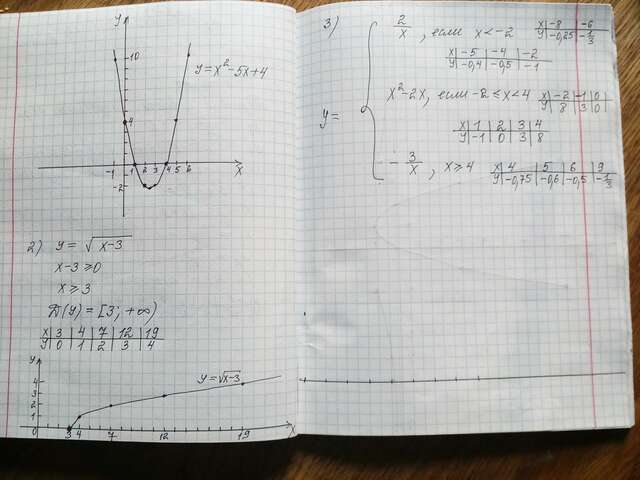 y
10
y=x²-5x+4
4
-1 1 2 3 4 5 6 x
-2
2) y = √x-3
x-3 ≥0
x ≥ 3
D(y) = [3; +∞)
x 3 4 7 12 19
y 0 1 2 3 4
y
y=√x-3
4
3
2
1
0 3 4 7 12 19 x
3)
y=
2/x, если x<-2
x -8 -6
y -0,25 -1/3
x -5 -4 -2
y -0,4 -0,5 -1
x²-2x, если -2≤x<4
x -2 -1 0
y 8 3 0
x 1 2 3 4
y -1 0 3 8
-3/x, x≥4
x 4 5 6 9
y -0,75 -0,6 -0,5 -1/3